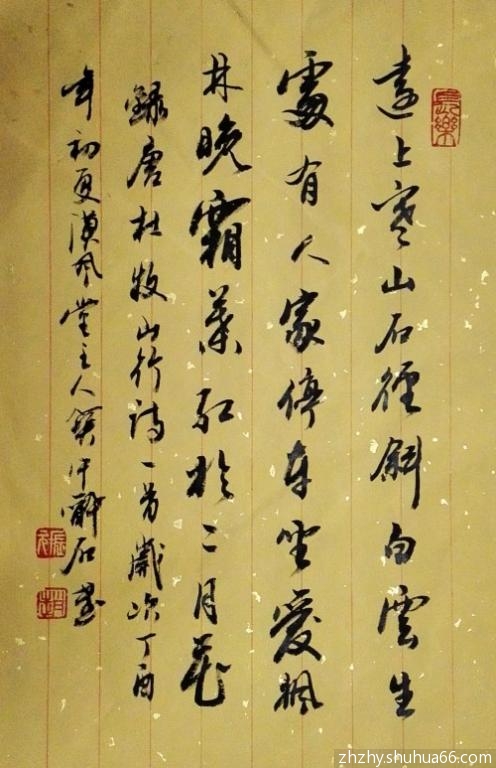 長樂
遠上寒山石徑斜白雲生
處有人家停車坐愛楓
林晚霜葉紅於二月花
錄唐杜牧山行詩一首歲次丁酉
年初夏漢風堂主人冀中石書
zhzhy.shuhua66.com